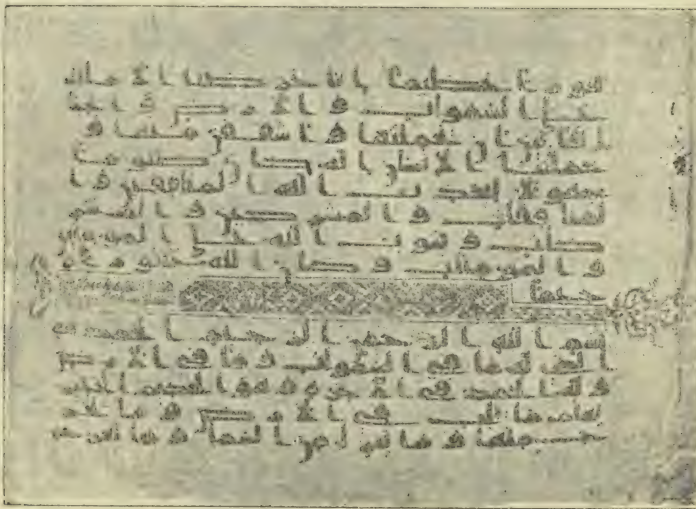 فوزا عظيما انا عرضنا الامانة
على السموت والارض والجبا
ل فابين ان يحملنها واشفقن منها و
حملها الانسن انه كان ظلوما
جهولا ليعذب الله المنفقين وا
لمنفقت والمشركين والمشر
كت ويتوب الله على المومنين
والمومنت وكان الله غفورا
رحيما
بسم الله الرحمن الرحيم الحمد لله
الذي له ما في السموت وما في الارض
وله الحمد في الاخرة وهو الحكيم الخبير
يعلم ما يلج في الارض وما يخرج
منها وما ينزل من السما وما يعرج